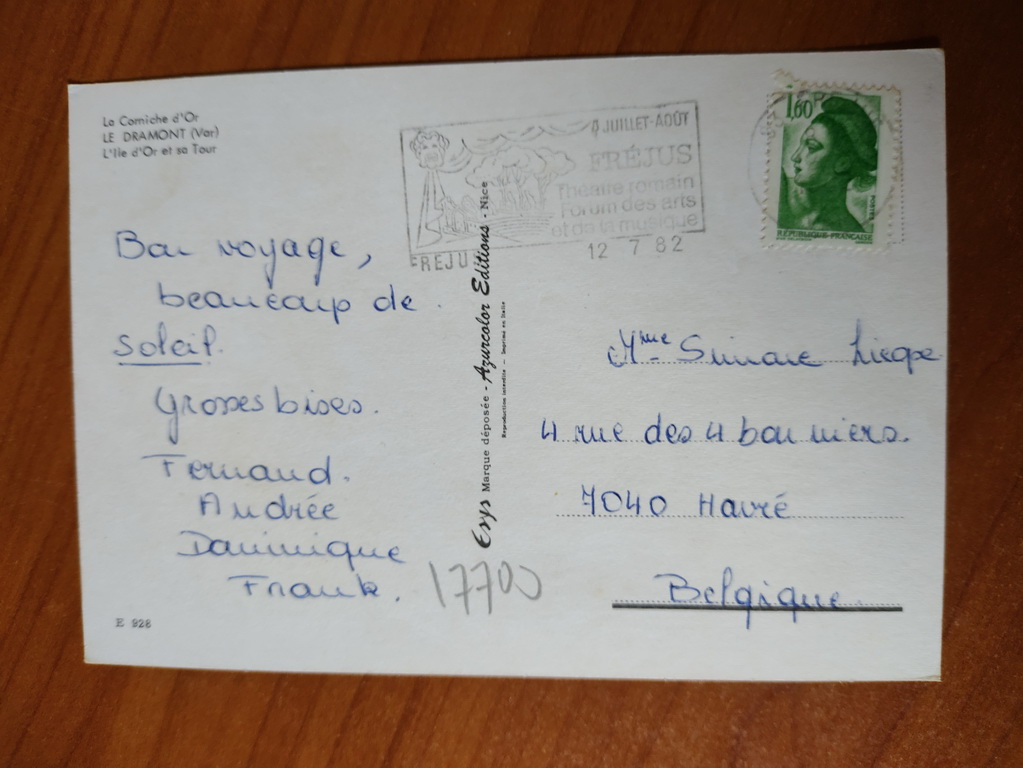 La Corniche d'Or
LE DRAMONT (Var)
L'Ile d'Or et sa Tour
Bon voyage,
beaucoup de
soleil.
Grosses bises.
Fernand.
Andrée
Dominique
Frank.
17700
E 928
Esys Marque déposée - Azurcolor Editions - Nice
Reproduction interdite - Imprimé en Italie
JUILLET-AOÛT
FRÉJUS
Théâtre romain
Forum des arts
et de la musique
FREJUS
12 7 82
1,60
POSTES
REPUBLIQUE FRANCAISE
Mme Simone
4 rue des 4 bonniers.
7040 Havré
Belgique